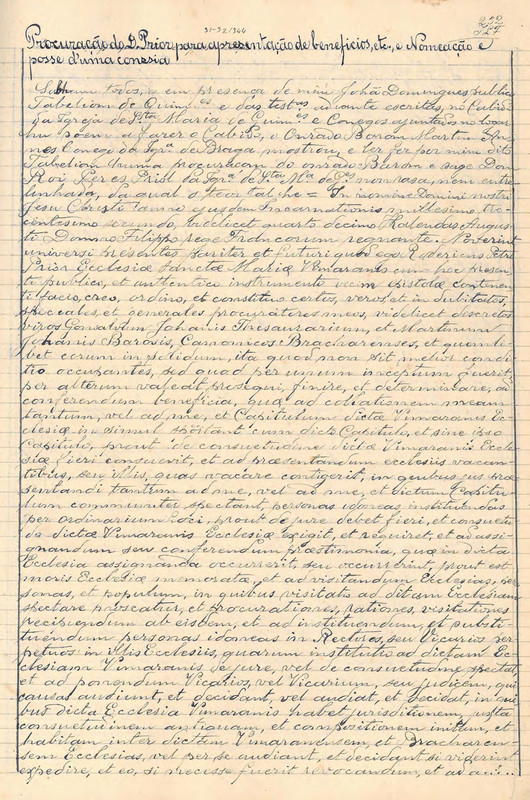 31-3-2-1344
232
227
Procuração do D. Prior para apresentação de beneficios, etc., e Nomeação e
posse d'uma conezia
Sabham todos, que em presença de mim Johão Domingues publico
Tabeliom de Guim.es e das test.as adeante escritas, no Cabido
da Igreja de S.ta Maria de Guim.es e Conegos ajuntados no logar
hu soem a fazer o Cabido, o Onrado Barom Martim
nes Conego da Igr.a de Braga, mostrou, e ler fez por mim dito
Tabeliom huma procuraçom do onrado Barom e sage Dom
Roi Peres, Priol da Igr.a de S.ta M.a de G.es non rasa, nem entre
linhada, da qual o teor tal he = In nomine Domini nostri
Jesu Christi anno ejusdem Incarnationis millesimo, tre-
centesimo secundo, videlicet quarto decimo Kalendas Augus-
ti Domno Filippo rege Francorum regnante. Noverint
universi presentes pariter et futuri quod ego Rodericus Petri
Prior Ecclesiæ Sanctæ Mariæ Vimaranis cum hoc presen-
te publico, et autentico instrumento vicem epistolæ continen-
ti facio, creo, ordino, et constituo certos, veros et indubitatos,
speceales, et generales procuratores meos, videlicet discretos
viros Gonsalvum Johanis Thesaurarium, et Martinum
Johanis Barosis, Cannonicos Bracharenses, et quemli-
bet eorum in solidum, ita quod non sit melior condi-
tio occupantes, sed quod per unum inceptum fuerit,
per alterum valeat prosequi, finire, et determinare, ad
conferendum beneficia, quæ ad collationem meam
tantum, vel ad me, et Capitulum dictæ Vimaranis Ec-
clesiæ in simul spectant cum dicto Capitulo, et sine ipso
Capitulo, prout de consuetudine dictæ Vimaranis Eccle-
siæ fieri consuevit, et ad præsentandum ecclesiis vacan-
tibus, seu illis, quas vacare contigerit, in quibus jus præ-
sentandi tantum ad me, vel ad me, et dictum Capitu-
lum communiter spectant, personas idoneas instituendas
per ordinarium loci, prout de jure debet fieri, et consuetu-
do dictæ Vimaranis Ecclesiæ exigit, et requiret, et ad assi-
gnandum seu conferendum præstimonia, quæ in dicta
Ecclesia assignanda occurrerit, seu occurrerint, prout est
moris Ecclesiæ memoratæ, et ad visitandum Ecclesias, per-
sonas, et populum, in quibus visitatio ad dictam Ecclesiam
spectare noscatur, et procurationes, rationes, visitationes
recipiendum ab eisdem, et ad instituendum, et substi-
tuendum personas idoneas in Rectores, seu Vicarios per-
petuos in illis Ecclesiis, quarum institutio ad dictam Ec-
clesiam Vimaranis de jure, vel de consuetudine spectat,
et ad ponendum Vicarios, vel Vicarium, seu judicem, qui
causas audiunt, et decidant, vel audiat, et decidat, in qui-
bus dicta Ecclesia Vimaranis habet jurisditionem, juxta
consuetudinem antiquam, et compositionem initam, et
habitam inter dictam Vimaranensem, et Bracharen-
sem Ecclesias, vel per se audiant, et decidant si viderint
expedire, et eo, si necesse fuerit revocandum, et ad